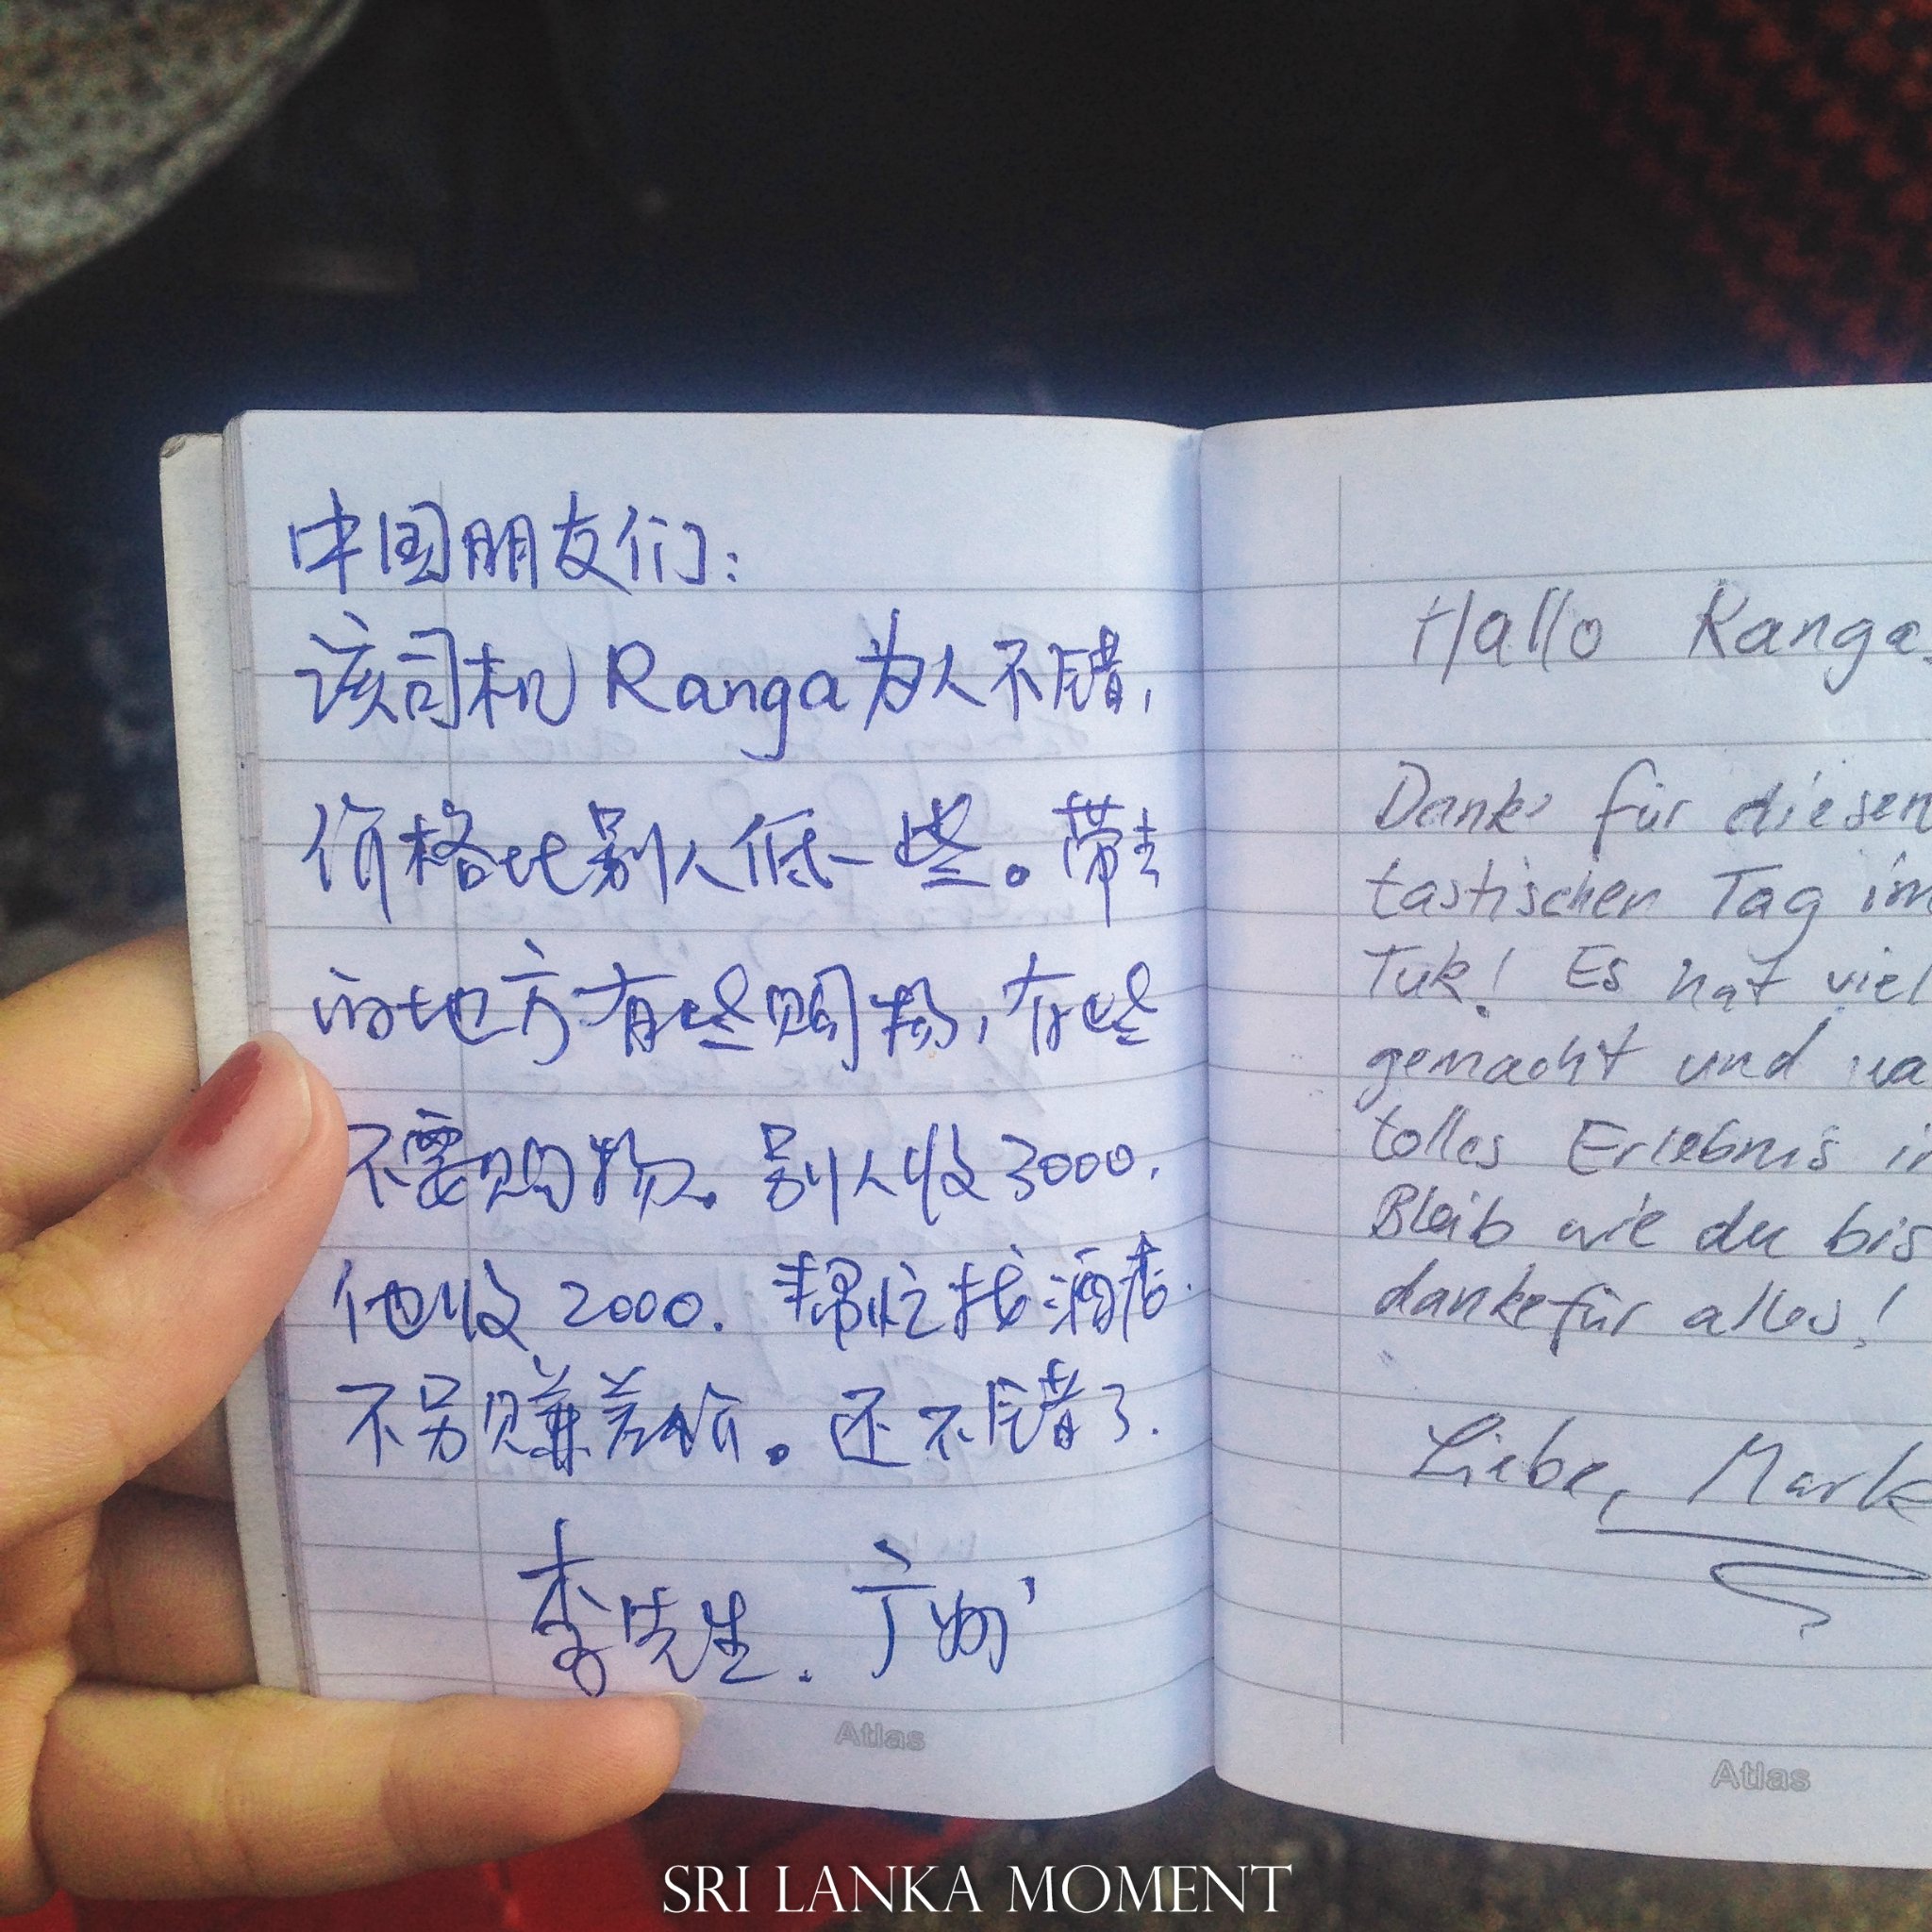 中国朋友们:
该司机Ranga为人不错,
价格比别人低一些。带去
的地方有些购物,有些
不需要购物。别人收3000,
他收2000. 帮忙找酒店.
不另赚差价。还不错了.
李先生. 广州
Atlas
Hallo Ranga
Danke für diesen
tastischen Tag im
Tuk! Es hat viel
gemacht und wa
tolles Erlebnis in
Bleib wie du bis
danke für alles!
Liebe, Mark
Atlas
SRI LANKA MOMENT